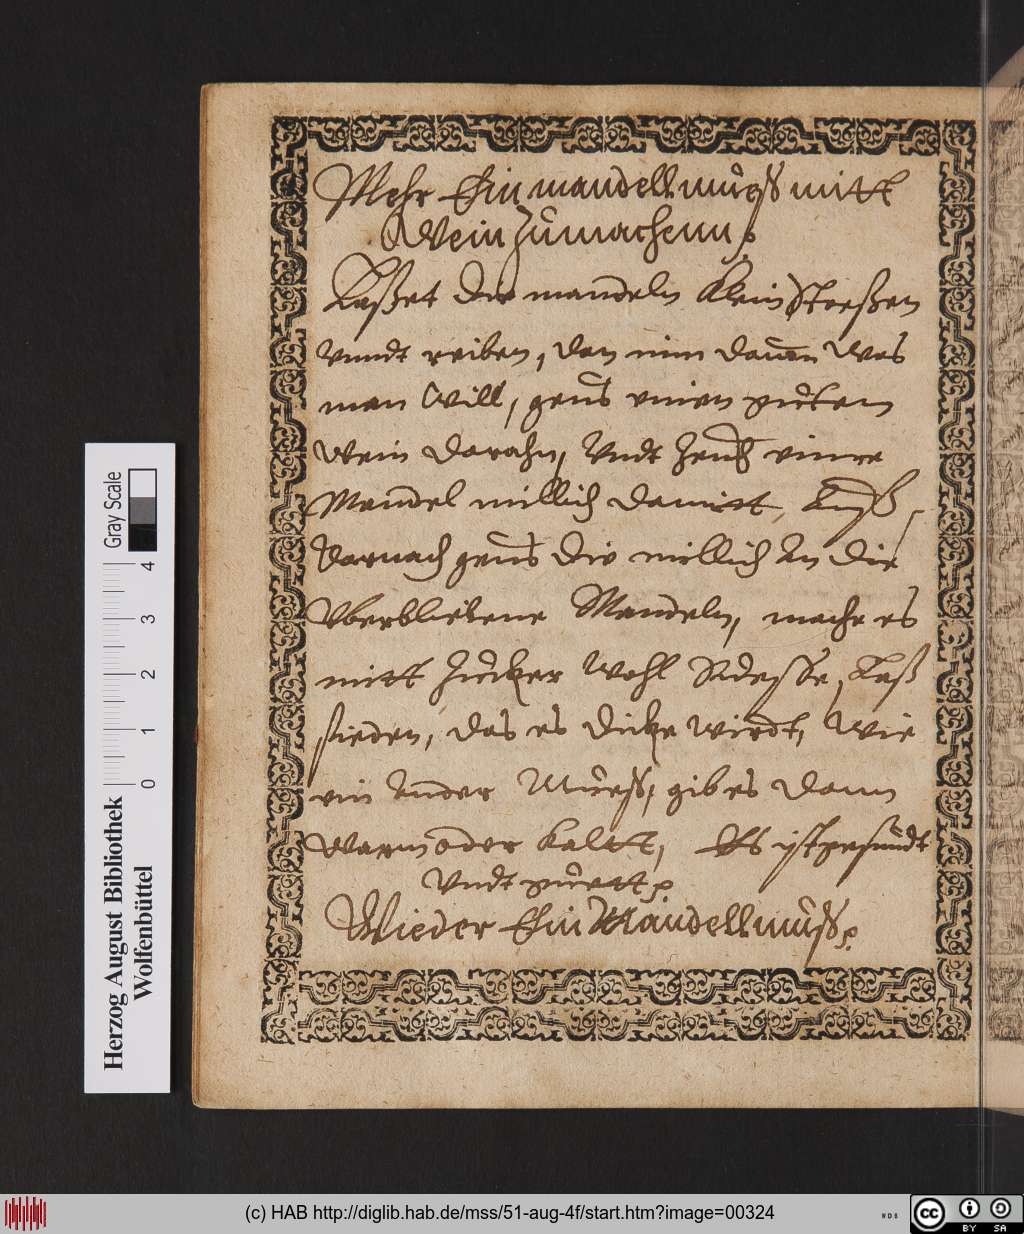 Mehr Ein mandell muoß mitt
Wein Zumachenn
Laßet die mandeln klein stoeßen
vnndt reiben, dan nim dauon was
man will, geus einen guten
wein darahn, vndt zeuch eine
Mandel millich damitt,
darnach geus die millich an die
vberbliebene Mandeln, mache es
mitt Zucker wohl Suesse, Laß
sieden, das es dicke wirdt, wie
ein ander Mueß, gib es dann
warm oder kaltt, Es ist gesundt
vndt guett
Wieder Ein Mandell muß
Gray Scale
0 1 2 3 4
Herzog August Bibliothek
Wolfenbüttel
(c) HAB http://diglib.hab.de/mss/51-aug-4f/start.htm?image=00324
WDB
cc BY SA